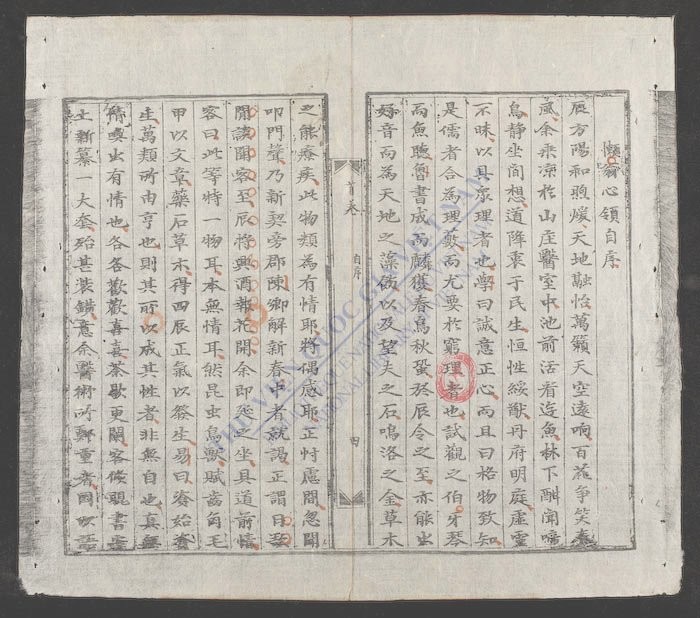 懶翁心領自序
辰方陽和煦煖天地融怡萬籟天空遠响百花爭笑春
風余乘凉於山庄醫室中池前活看遊魚林下酣聞啼
鳥靜坐間想道降衷于民生恒性綏猷丹府明庭虛靈
不昧以具衆理者也學曰誠意正心而且曰格物致知
是儒者合為理數而尤要於窮理者也試觀之伯牙琴
而魚聽魯書成而麟獲春鳥秋蛩於辰令之至亦能出
好音而為天地之藻飾以及望夫之石鳴洛之金草木
首卷
自序
四
之能療疾此物類為有情耶將偶感耶正忖慮間忽聞
叩門聲乃新契旁郡陳卿解新春中者就謁正謂曰
閒談聞客至辰將興酒報花開余即延之坐具道前情
客曰此等特一物耳本無情耳然昆虫鳥獸賦齒角毛
甲以文章藥石草木得四辰正氣以發生易曰資始資
生萬類所由亨也則其所以成其性者非無自也真無
情與出有情也各各歡歡喜喜茶歇更闌客候覩書
上新纂一大套殆甚裝錯意余醫術所鄭重者因以語
THƯ VIỆN QUỐC GIA VIỆT NAM